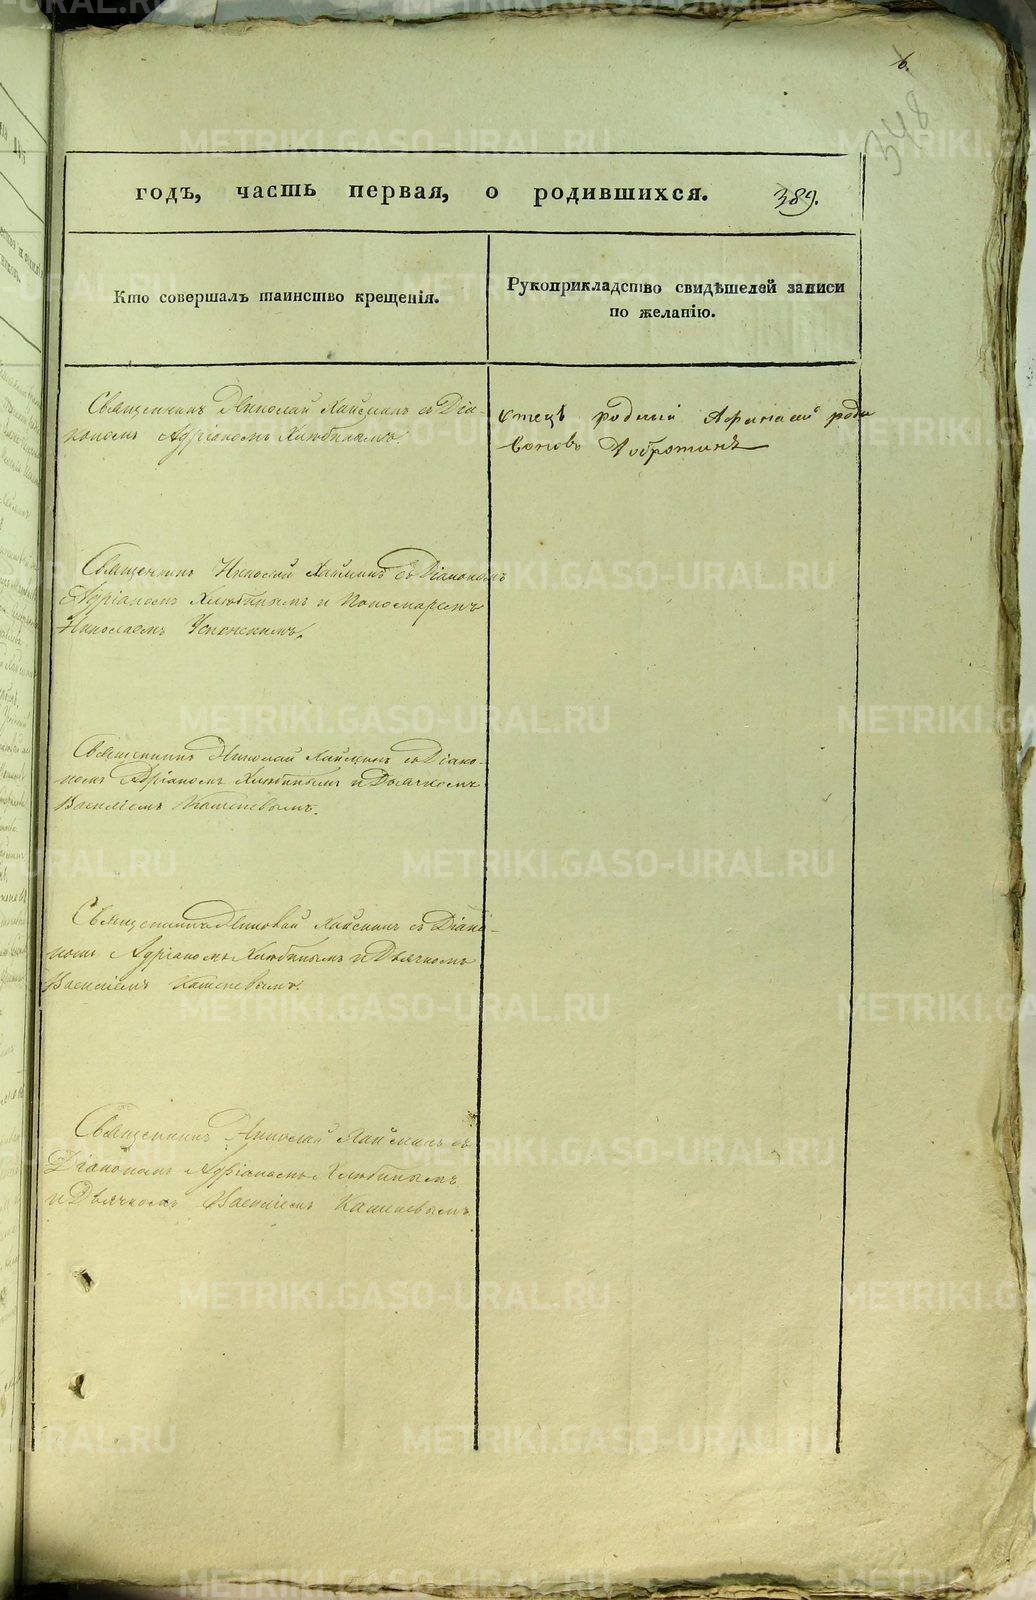 6.
348
годъ, часть первая, о родившихся. 389.
Кто совершалъ таинство крещенія.
Рукоприкладство свидѣтелей записи
по желанію.
Священникъ Николай Хаймина съ Діа-
кономъ Адріаномъ Хлюбинымъ.
отецъ родный Афанасий роди
воновъ Добротинъ
Священникъ Николай съ Діакономъ
Адріаномъ Хлюбинымъ и Пономаремъ
Николаемъ Успенскимъ.
Священникъ Николай съ Діако-
номъ Адріаномъ Хлюбинымъ и Дьячкомъ
Василіемъ
Священникъ Николай съ Діако-
номъ Адріаномъ Хлюбинымъ и Дьячкомъ
Василіемъ
Священникъ Николай съ
Діакономъ Адріаномъ Хлюбинымъ
и Дьячкомъ Василіемъ
METRIKI.GASO-URAL.RU